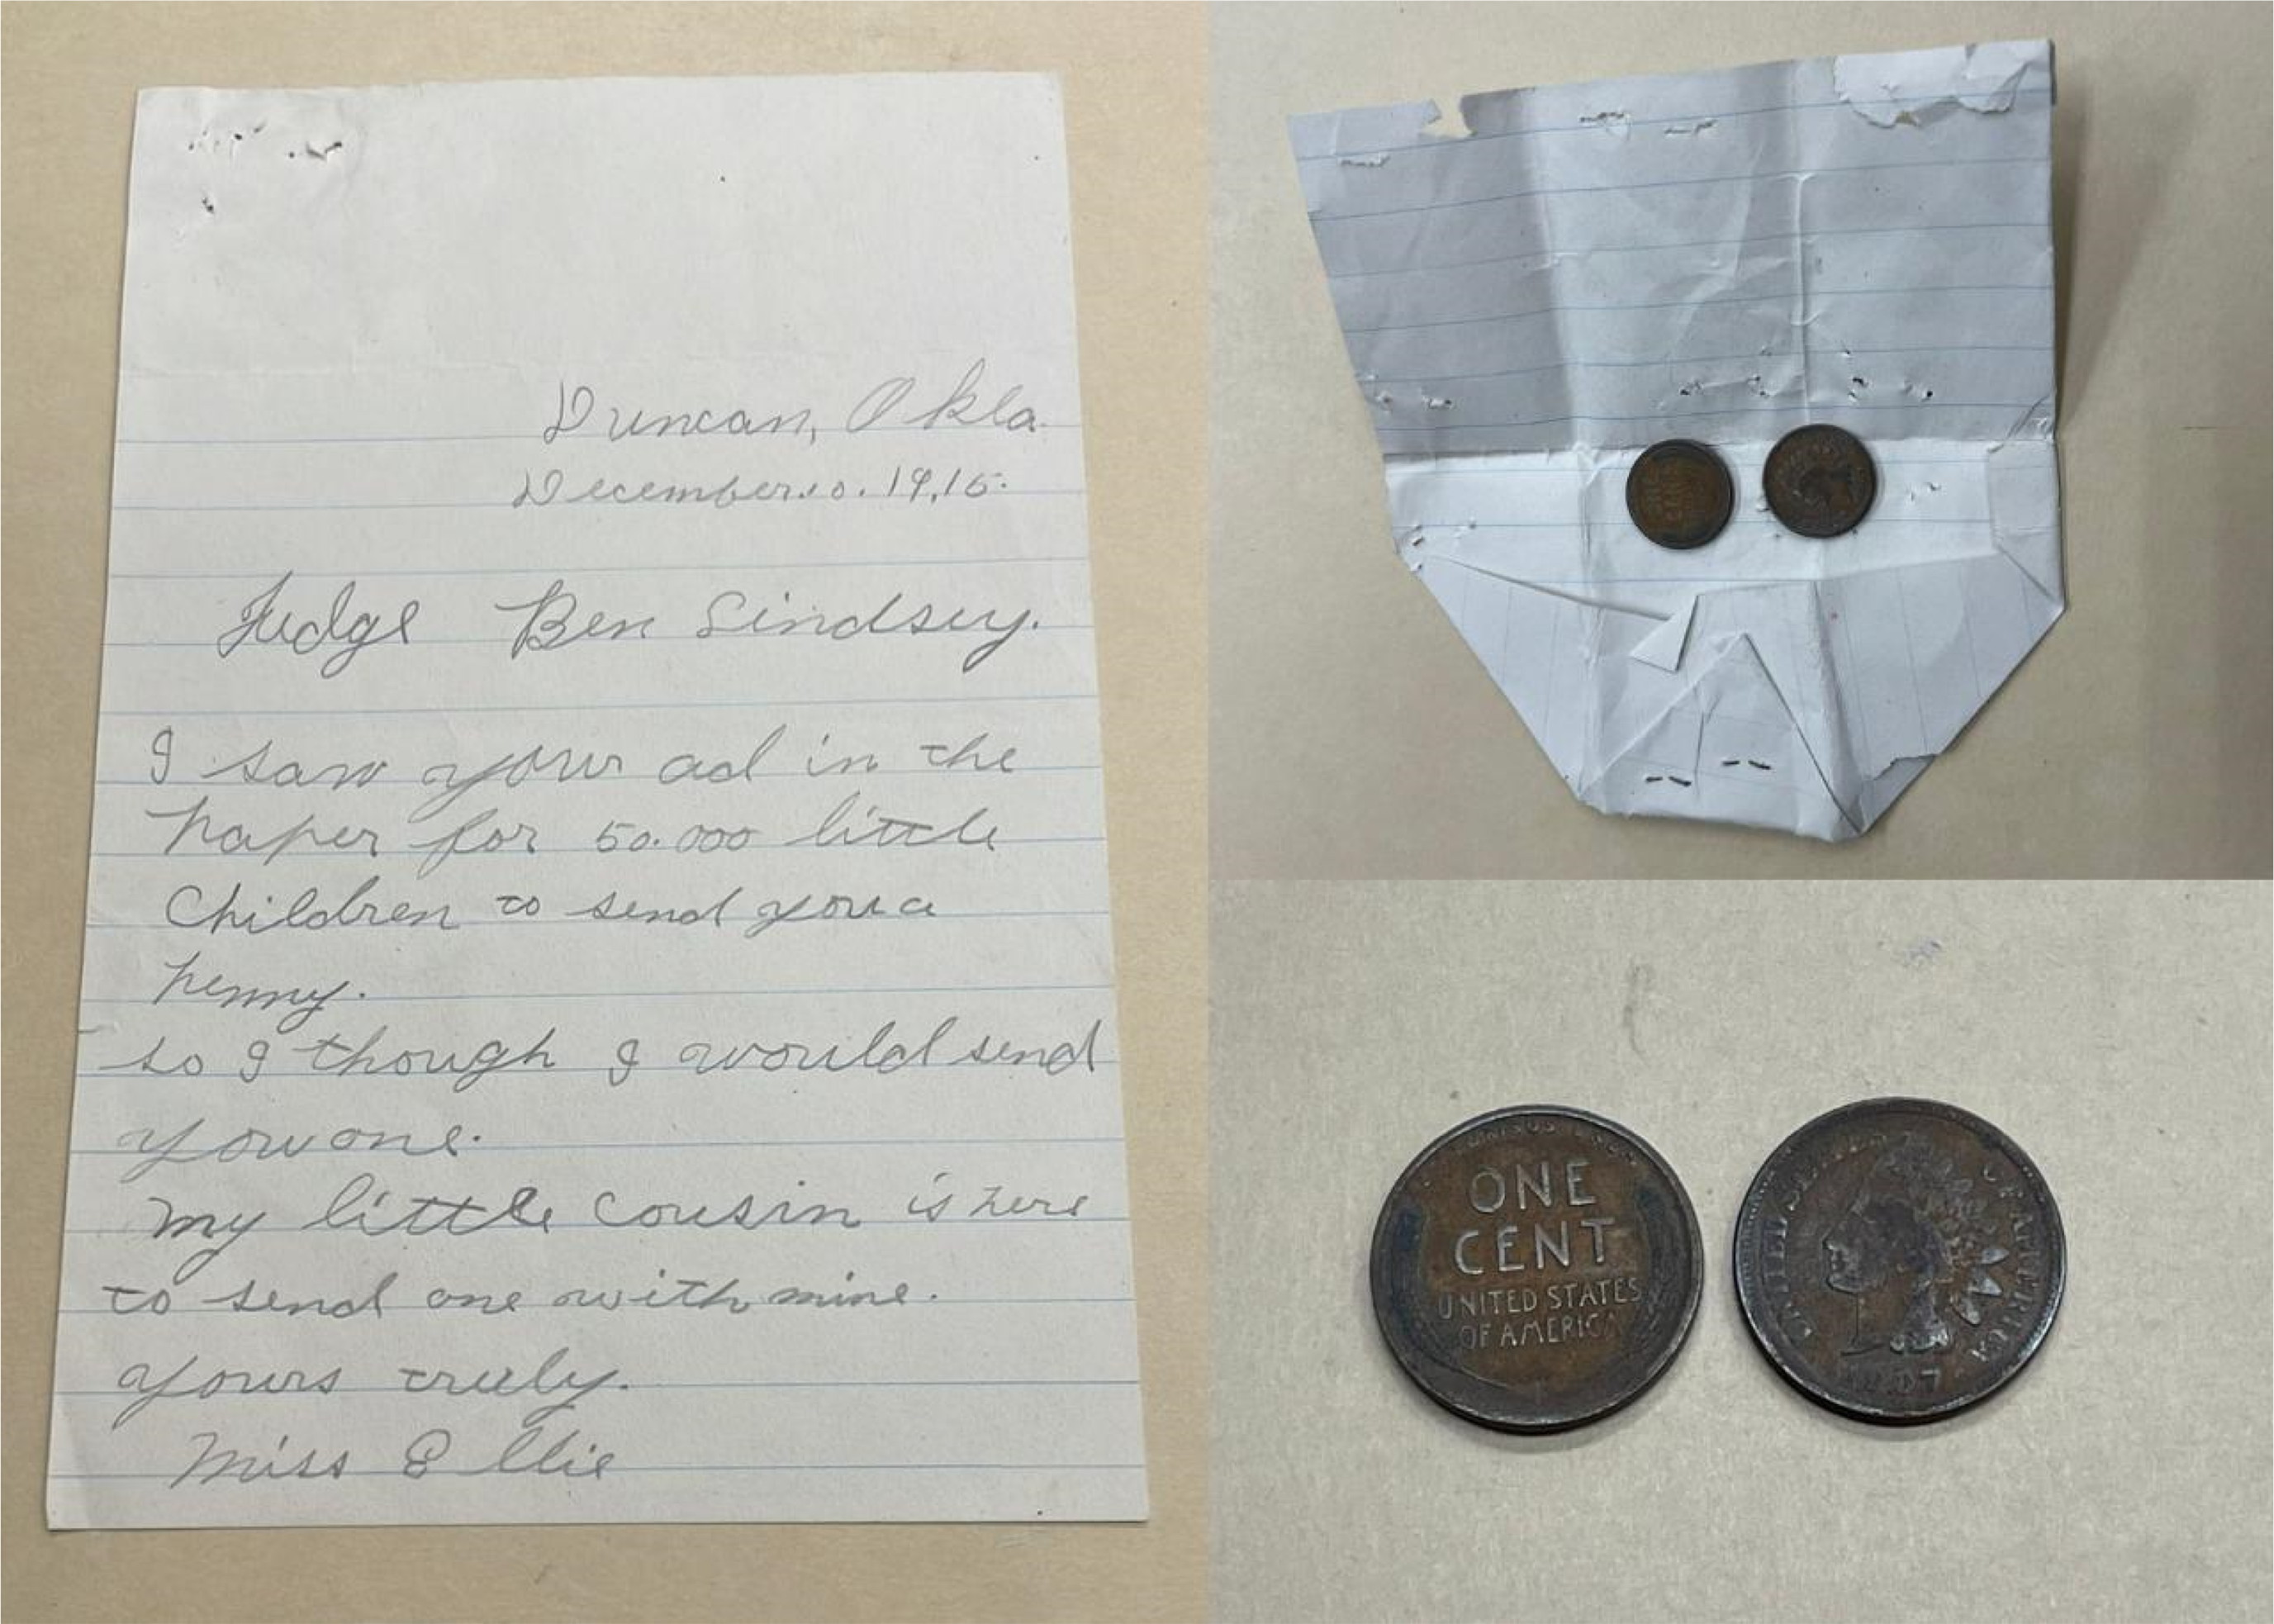 Duncan, Okla.
December.10.19,15.
Judge Ben Lindsey.
I saw your ad in the
paper for 50.000 little
Children to send you a
penny.
so I though I would send
you one.
my little cousin is here
to send one with mine.
yours truly.
Miss Ellie
ONE
CENT
UNITED STATES
OF AMERICA
UNITED STATES OF AMERICA